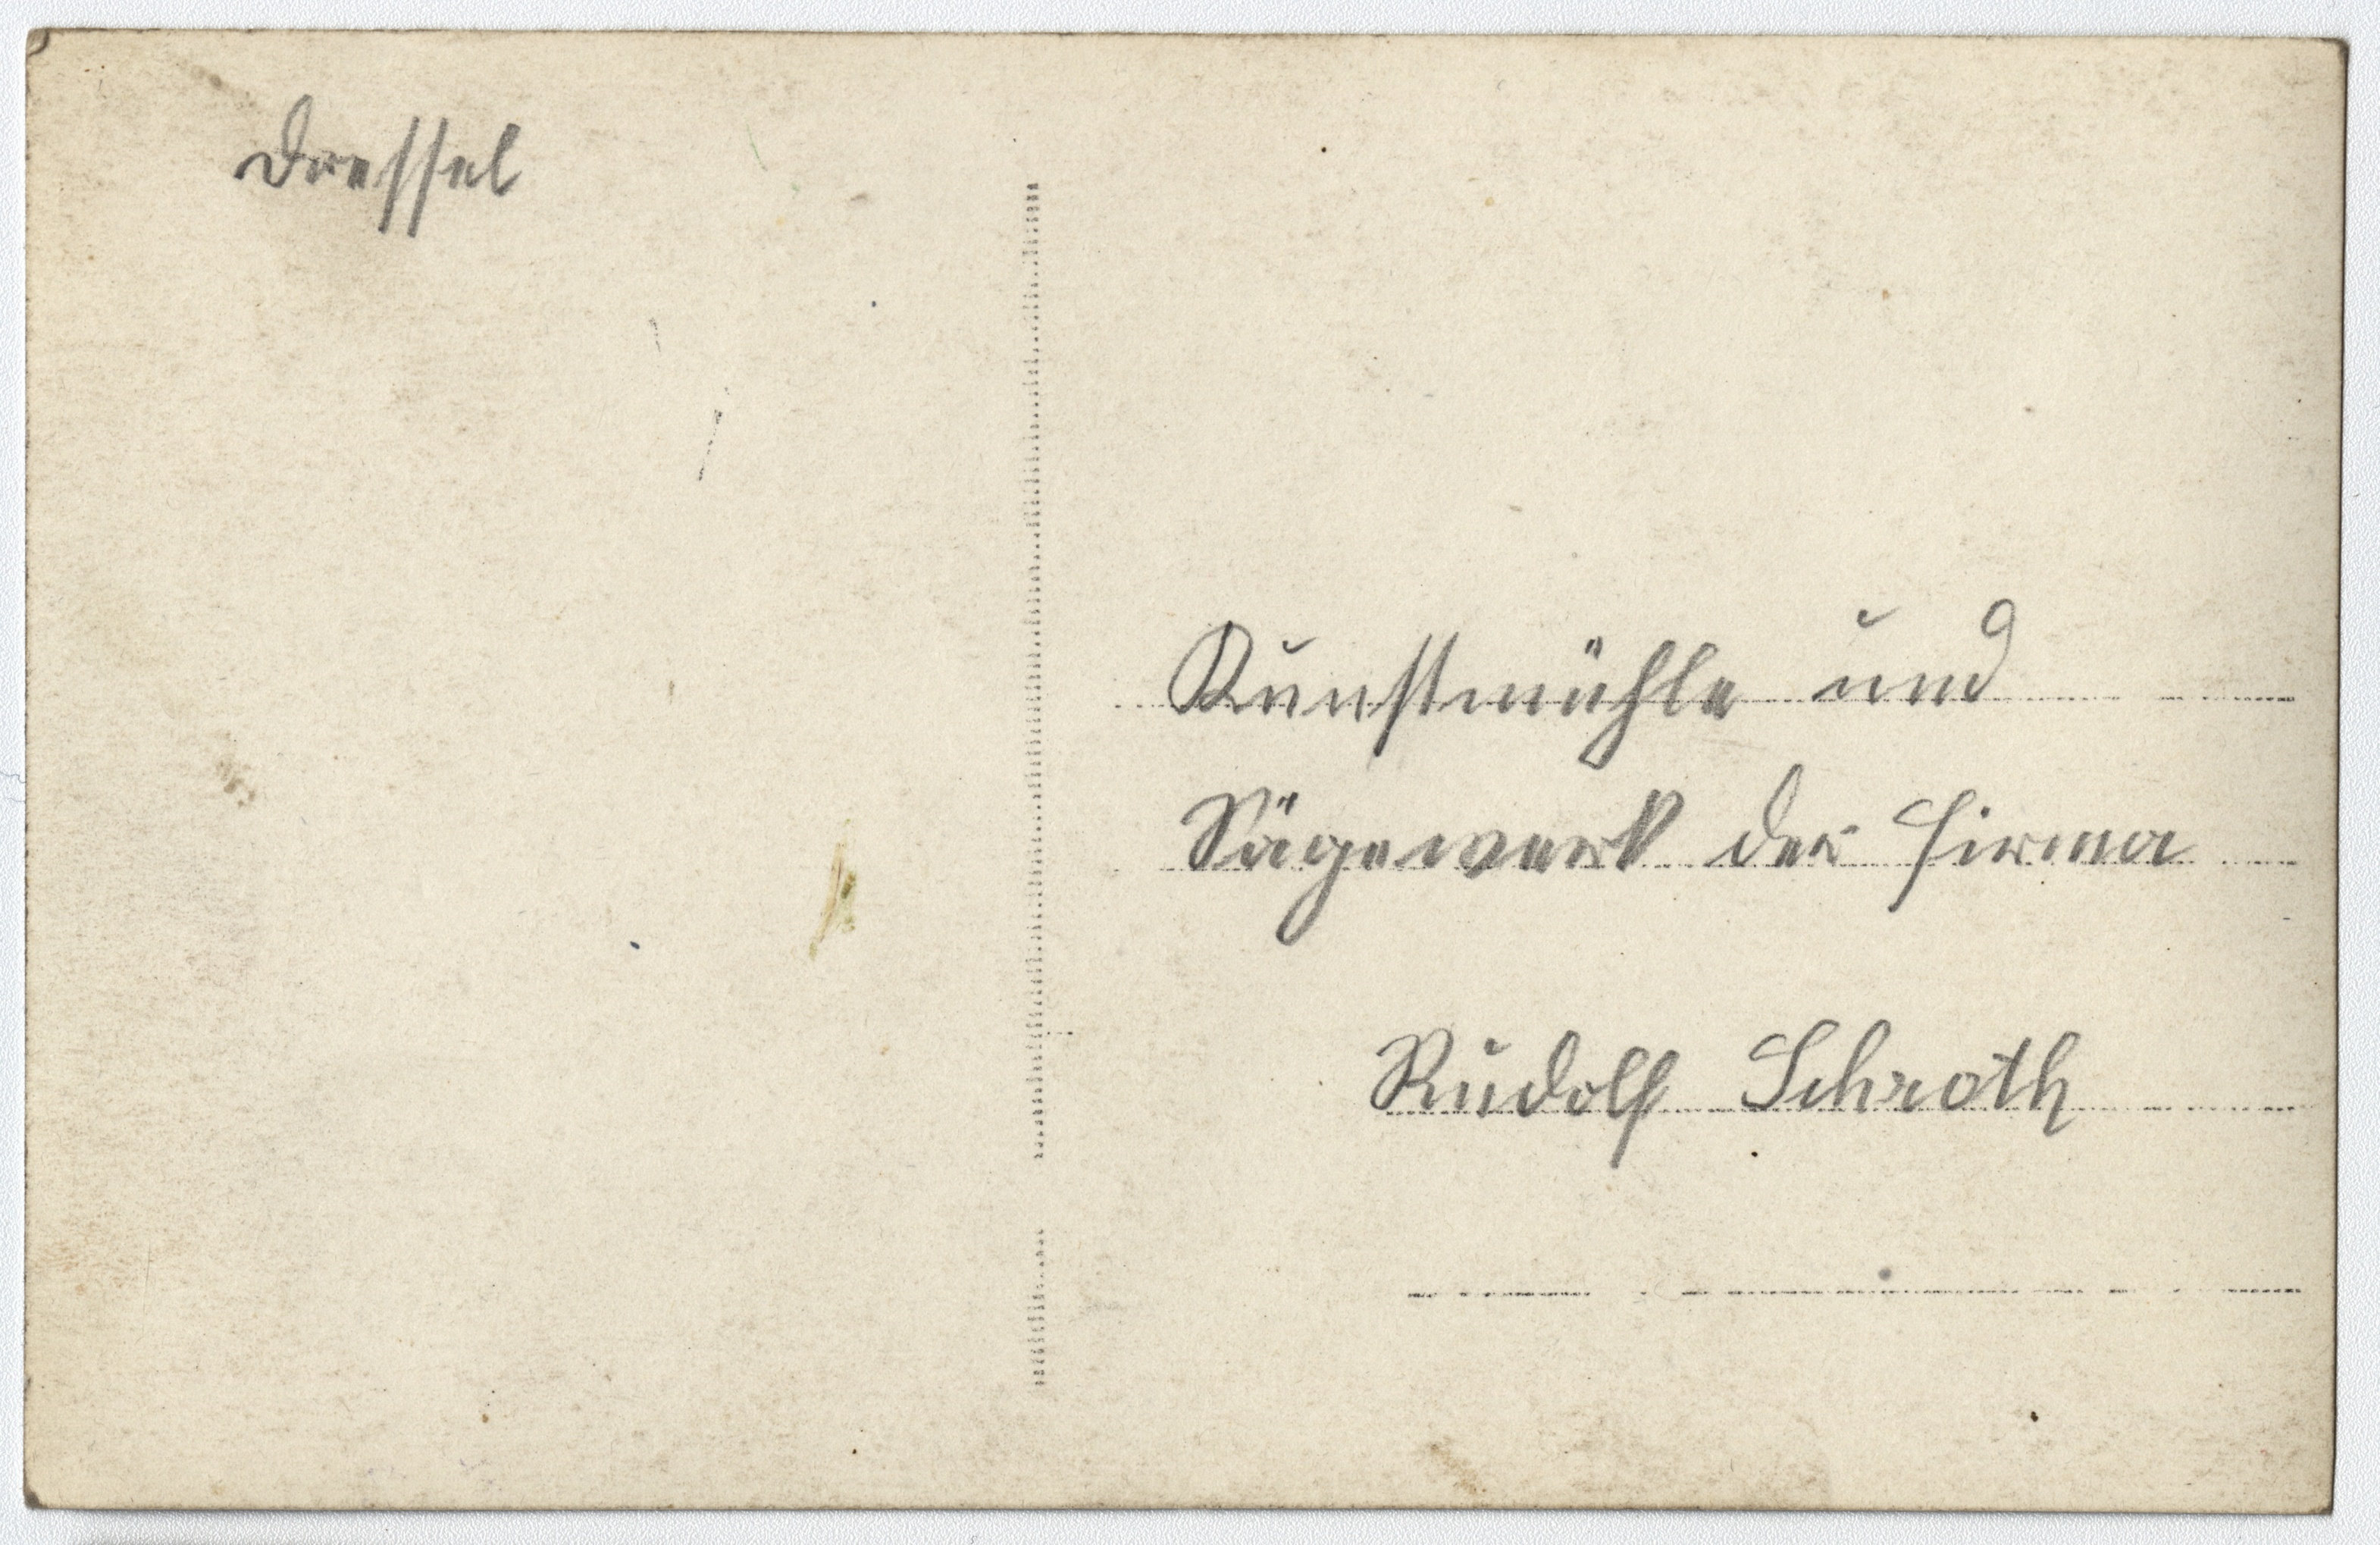 Dressel
Kunstmühle und
Sägewerk der Firma
Rudolf Schroth